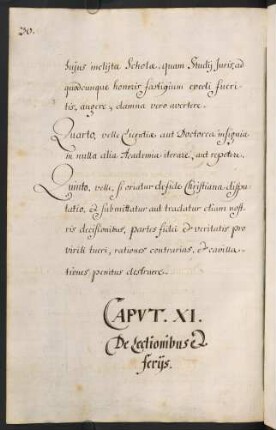 30.
hujus inclyta Schola, quam Studij Juris, ad
quodcunque honoris fastigium evecti fueri-
tis, augere, damna vero avertere.
Quarto, velle Licentia aut Doctorea insignia
in nulla alia Academia iterare, aut repetere.
Quinto, velle, si oriatur de fide Christiana dispu-
tatio, et submittatur aut tradatur etiam nost-
ris decisionibus, partes fidei et veritatis pro
virili tueri, rationes contrarias, et cavilla-
tiones penitus destruere.
CAPVT. XI.
De Lectionibus et
ferijs.